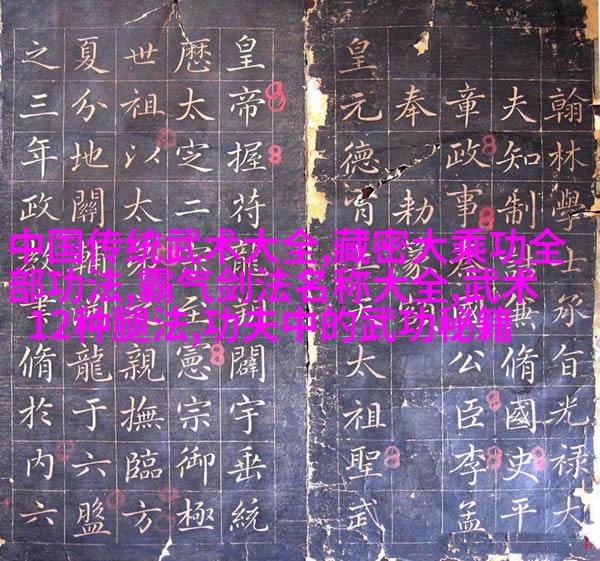 翰林學士承旨光祿大
夫知制誥兼脩國史平
章政事國公臣李孟
奉勅
皇元德太祖聖武
皇帝握符龍闢宇垂統
厯太定二至憲宗御極
世祖以太親撫臨方
夏分地關輔龍于六盤
之三年政脩於内六
中国传统武术大全,藏密大乘功全
部功法,霸气剑法名称大全,武术
12种腿法,功夫中的武功秘籍